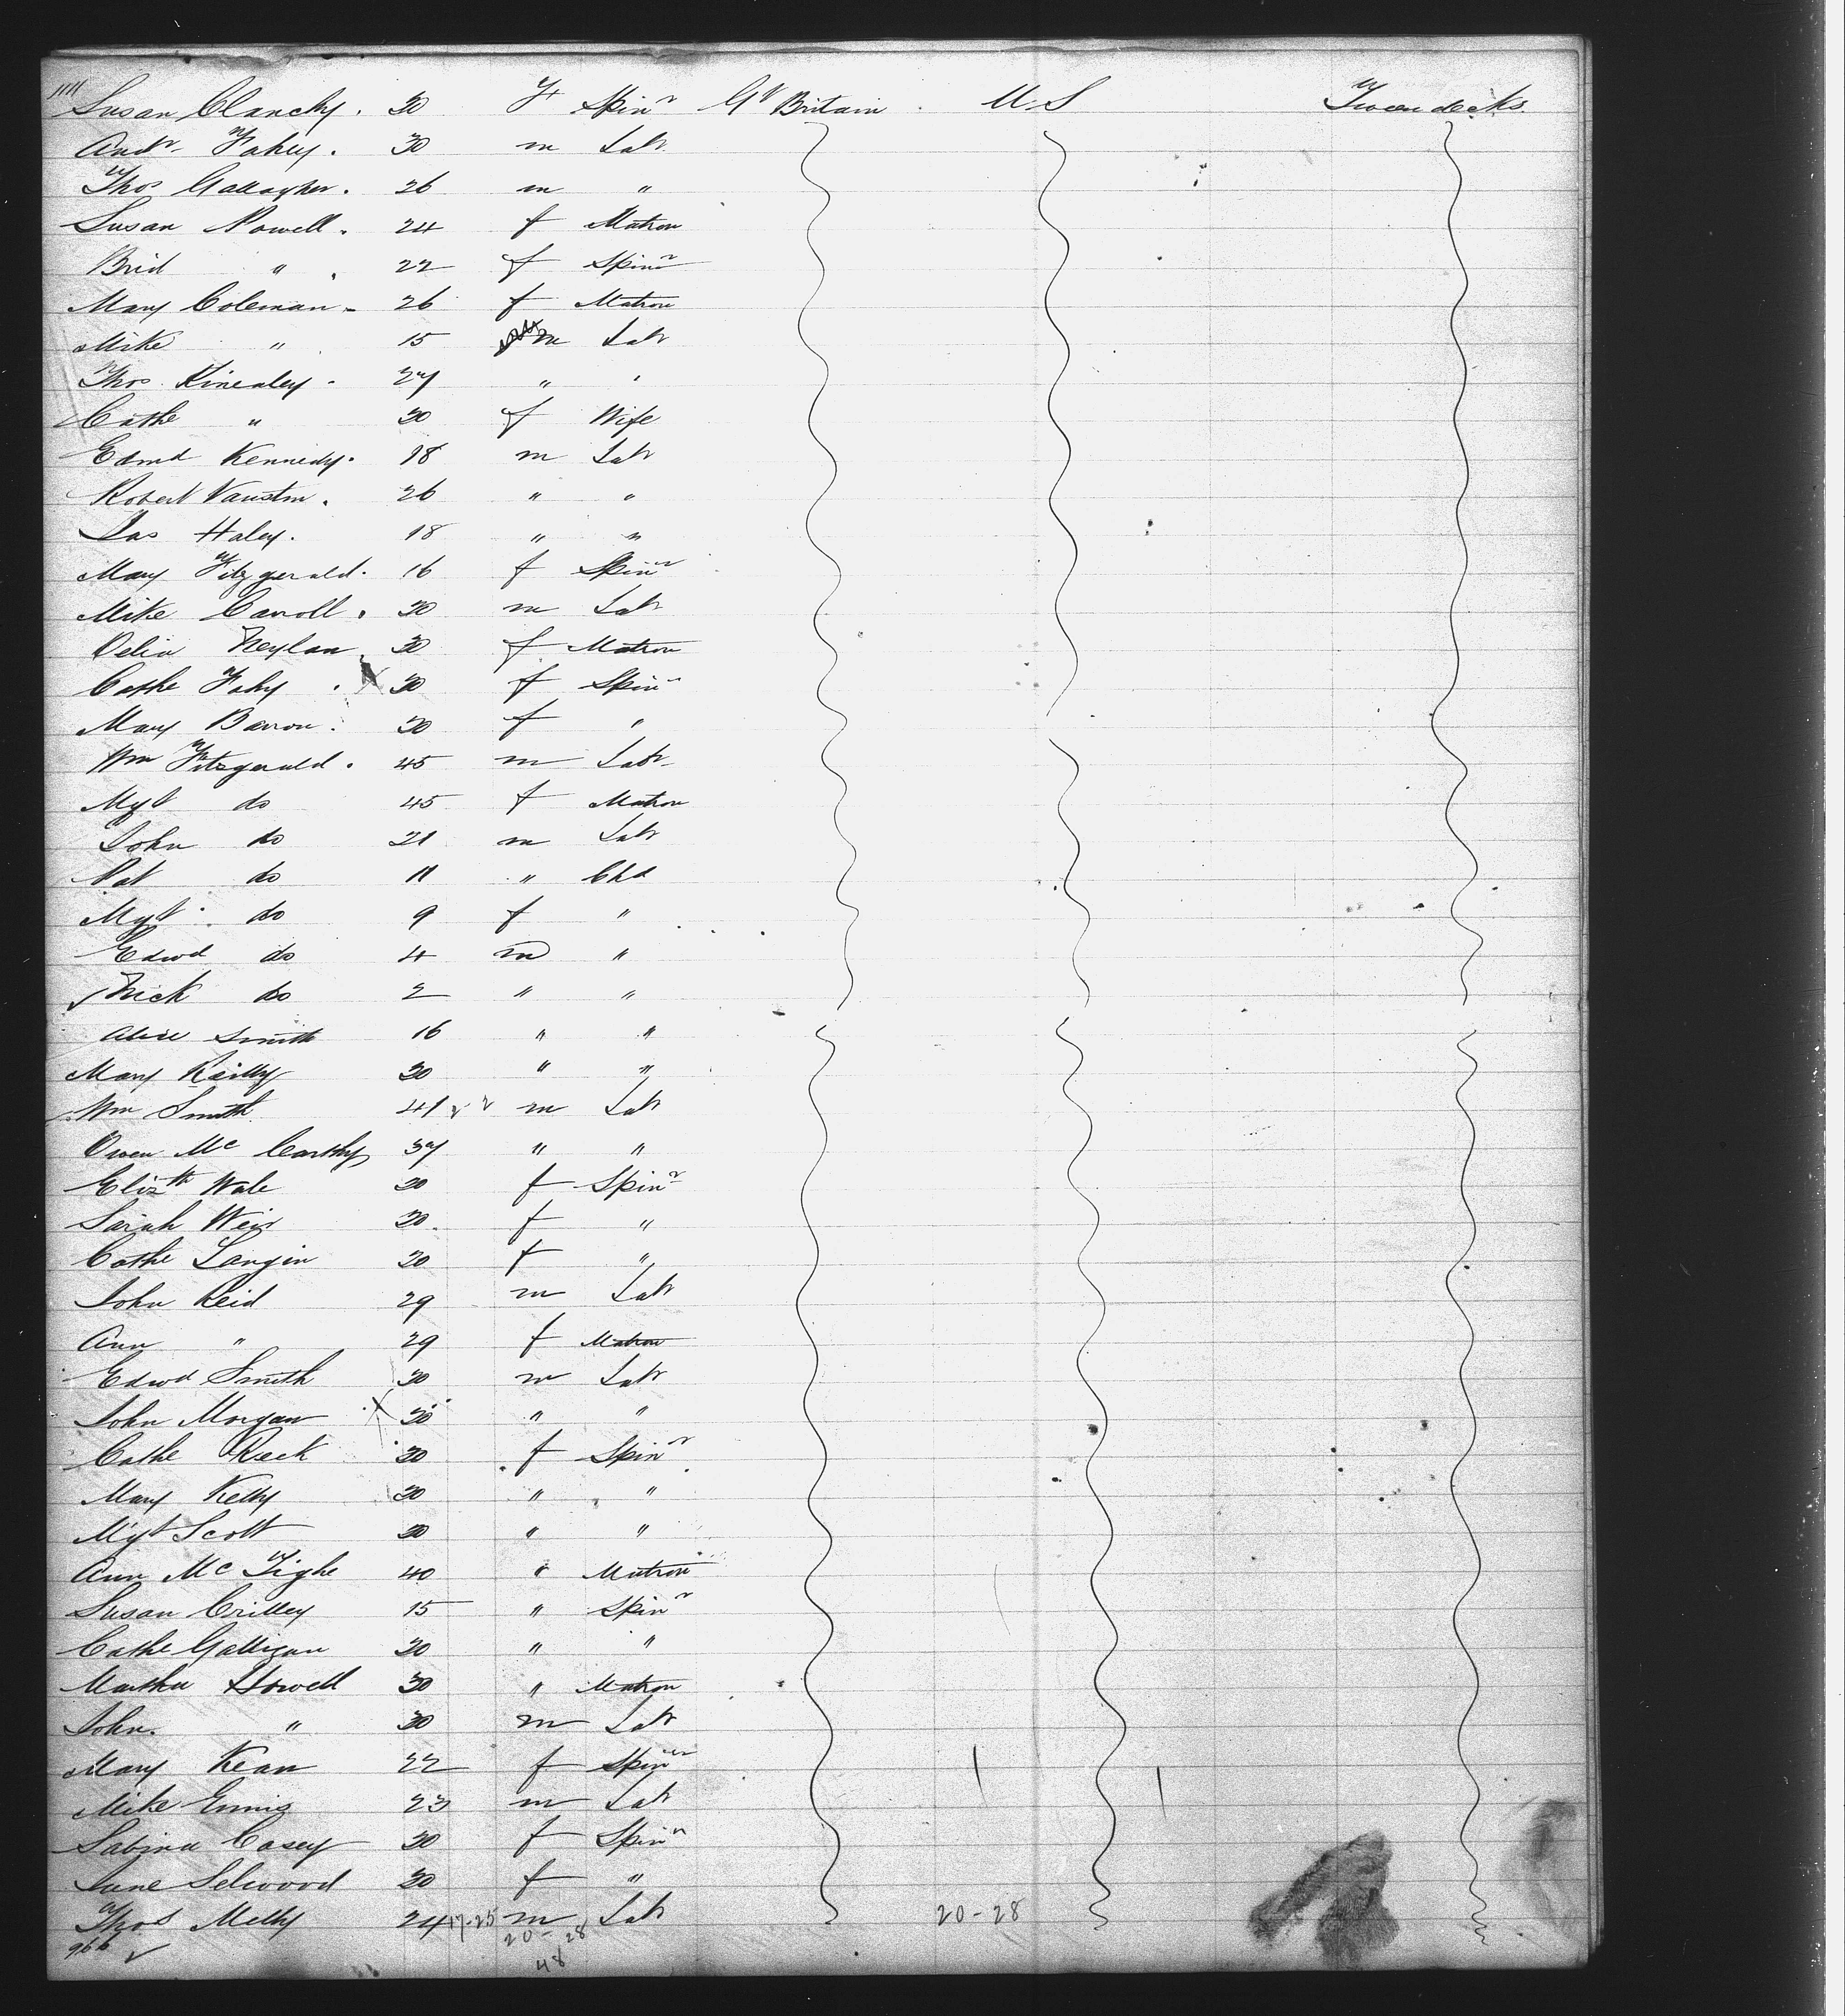 1111
Susan Clanchy . 20 F Spinr Gt Britain . U.S Tween decks.
Andr Fahey . 30 m Labr
Thos Gallagher . 26 m "
Susan Powell . 24 f Matron
Brid " . 22 f Spinr
Mary Coleman - 26 f Matron
Mike " 15 m Labr
Thos Kinealey - 27 " '
Cathe " 20 f Wife
Edmd Kennedy . 18 m Labr
Robert . 26 " "
Jas Haley . 18 " "
Mary Fitzgerald . 16 f Spinr
Mike Carroll . 20 m Labr
Delia Neylan . 30 f Matron
Cathe Fahy . X 30 f Spinr
Mary Barron . 30 f "
Wm Fitzgerald . 45 m Labr
Mgt do 45 f Matron
John do 21 m Labr
Pat do 11 " Chd
Mgt do 9 f "
Edwd do 4 m "
Nick do 2 " "
Alice Smith 16 " "
Mary Reilly 30 " "
Wm Smith 41 m Labr
Owen Mc Carthy 37 " "
Elizth Wale 20 f Spinr
Sarah Weir 20 . f "
Cathe Langin 20 f "
John Reid 29 m Labr
Ann " 29 f Matron
Edwd Smith 30 m Labr
John Morgan X 20 " "
Cathe Reck 20 f Spinr
Mary Kelly 20 " "
Mgt Scott 20 " "
Ann Mc Tighe 40 " Matron
Susan Crilley 15 " Spinr
Cathe Galligan 20 " "
Martha Howell 30 " Matron
John . " 30 m Labr
Mary Kean 22 f Spinr
Mike Ennis 23 m Labr
Sabina Casey 20 f Spinr
Jane Selwood 20 f "
Thos Melly 24 17-25 m Labr 20-28
966 20-28
48